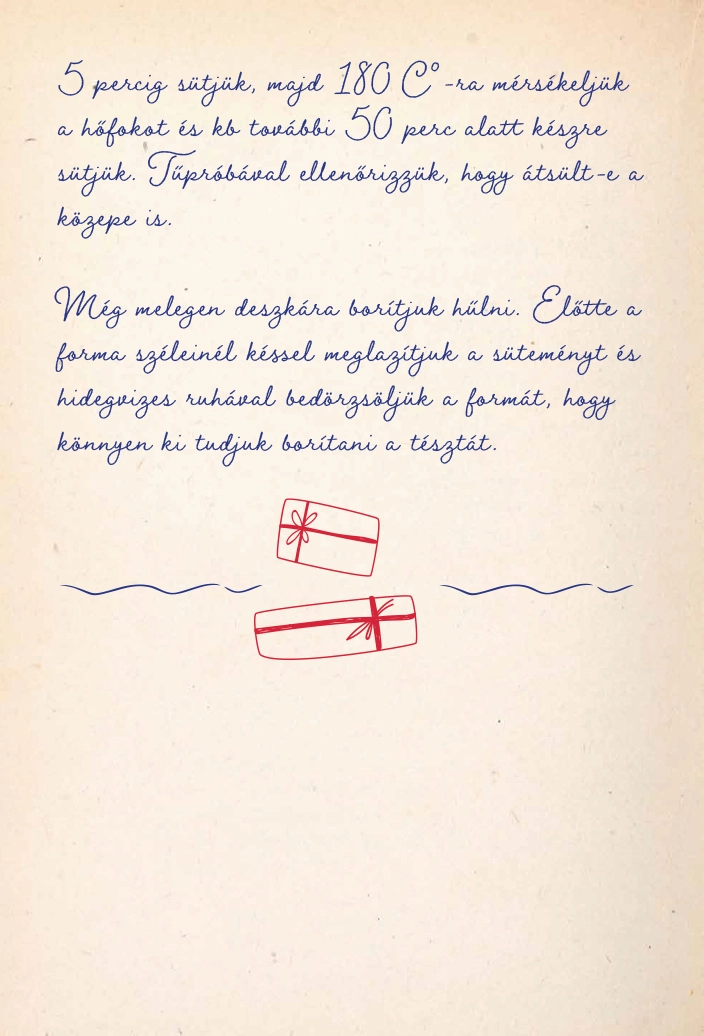 5 percig sütjük, majd 180 C° -ra mérsékeljük
a hőfokot és kb további 50 perc alatt készre
sütjük. Tűpróbával ellenőrizzük, hogy átsült-e a
közepe is.
Még melegen deszkára borítjuk hűlni. Előtte a
forma széleinél késsel meglazítjuk a süteményt és
hidegvizes ruhával bedörzsöljük a formát, hogy
könnyen ki tudjuk borítani a tésztát.